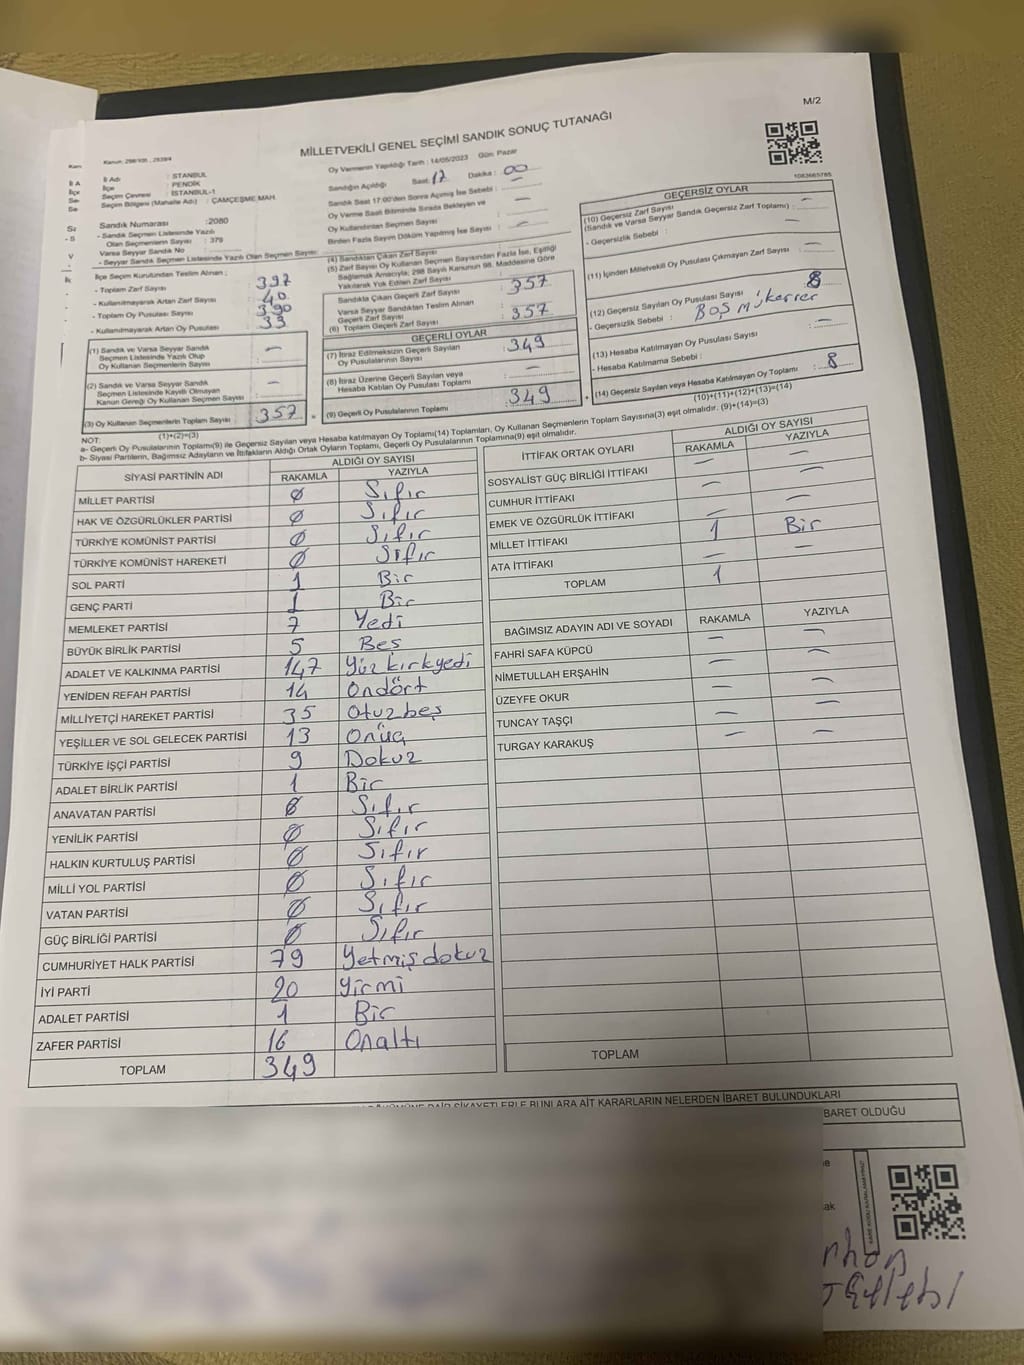 M/2
MİLLETVEKİLİ GENEL SEÇİMİ SANDIK SONUÇ TUTANAĞI
Kanun: 298/105 , 2839/4
İl Adı : STANBUL
İlçe : PENDİK
Seçim Çevresi : İSTANBUL-1
Seçim Bölgesi (Mahalle Adı) : ÇAMÇEŞME MAH.
Sandık Numarası :2080
- Sandık Seçmen Listesinde Yazılı
Olan Seçmenlerin Sayısı : 379
Varsa Seyyar Sandık No
- Seyyar Sandık Seçmen Listesinde Yazılı Olan Seçmen Sayısı:
İlçe Seçim Kurulundan Teslim Alınan ;
- Toplam Zarf Sayısı : 397
- Kullanılmayarak Artan Zarf Sayısı : 40
- Toplam Oy Pusulası Sayısı : 390
- Kullanılmayarak Artan Oy Pusulası : 33
(1) Sandık ve Varsa Seyyar Sandık
Seçmen Listesinde Yazılı Olup
Oy Kullanan Seçmenlerin Sayısı : –
(2) Sandık ve Varsa Seyyar Sandık
Seçmen Listesinde Kayıtlı Olmayan
Kanun Gereği Oy Kullanan Seçmen Sayısı : –
(3) Oy Kullanan Seçmenlerin Toplam Sayısı : 357
(1)+(2)=(3)
Oy Vermenin Yapıldığı Tarih : 14/05/2023 Gün: Pazar
Sandığın Açıldığı Saat: 17 Dakika : 00
Sandık Saat 17:00'den Sonra Açılmış İse Sebebi : –
Oy Verme Saati Bitiminde Sırada Bekleyen ve
Oy Kullandırılan Seçmen Sayısı : –
Birden Fazla Sayım Döküm Yapılmış İse Sayısı : –
(4) Sandıktan Çıkan Zarf Sayısı
(5) Zarf Sayısı Oy Kullanan Seçmen Sayısından Fazla İse, Eşitliği
Sağlamak Amacıyla, 298 Sayılı Kanunun 98. Maddesine Göre
Yakılarak Yok Edilen Zarf Sayısı :
Sandıkta Çıkan Geçerli Zarf Sayısı : 357
Varsa Seyyar Sandıktan Teslim Alınan
Geçerli Zarf Sayısı
(6) Toplam Geçerli Zarf Sayısı : 357
GEÇERLİ OYLAR
(7) İtiraz Edilmeksizin Geçerli Sayılan
Oy Pusulalarının Sayısı : 349
(8) İtiraz Üzerine Geçerli Sayılan veya
Hesaba Katılan Oy Pusulası Toplamı : –
(9) Geçerli Oy Pusulalarının Toplamı : 349
1083665765
GEÇERSİZ OYLAR
(10) Geçersiz Zarf Sayısı
(Sandık ve Varsa Seyyar Sandık Geçersiz Zarf Toplamı) : –
- Geçersizlik Sebebi : –
(11) İçinden Milletvekili Oy Pusulası Çıkmayan Zarf Sayısı : –
(12) Geçersiz Sayılan Oy Pusulası Sayısı : 8
- Geçersizlik Sebebi : BOŞ Mükerrer
(13) Hesaba Katılmayan Oy Pusulası Sayısı : –
- Hesaba Katılmama Sebebi :
(14) Geçersiz Sayılan veya Hesaba Katılmayan Oy Toplamı : 8
(10)+(11)+(12)+(13)=(14)
NOT:
a- Geçerli Oy Pusulalarının Toplamı(9) ile Geçersiz Sayılan veya Hesaba katılmayan Oy Toplamı(14) Toplamları, Oy Kullanan Seçmenlerin Toplam Sayısına(3) eşit olmalıdır. (9)+(14)=(3)
b- Siyasi Partilerin, Bağımsız Adayların ve İttifakların Aldığı Ortak Oyların Toplamı, Geçerli Oy Pusulalarının Toplamına(9) eşit olmalıdır.
SİYASİ PARTİNİN ADI ALDIĞI OY SAYISI
RAKAMLA YAZIYLA
MİLLET PARTİSİ 0 Sıfır
HAK VE ÖZGÜRLÜKLER PARTİSİ 0 Sıfır
TÜRKİYE KOMÜNİST PARTİSİ 0 Sıfır
TÜRKİYE KOMÜNİST HAREKETİ 0 Sıfır
SOL PARTİ 1 Bir
GENÇ PARTİ 1 Bir
MEMLEKET PARTİSİ 7 Yedi
BÜYÜK BİRLİK PARTİSİ 5 Beş
ADALET VE KALKINMA PARTİSİ 147 Yüzkırkyedi
YENİDEN REFAH PARTİSİ 14 Ondört
MİLLİYETÇİ HAREKET PARTİSİ 35 Otuzbeş
YEŞİLLER VE SOL GELECEK PARTİSİ 13 Onüç
TÜRKİYE İŞÇİ PARTİSİ 9 Dokuz
ADALET BİRLİK PARTİSİ 1 Bir
ANAVATAN PARTİSİ 0 Sıfır
YENİLİK PARTİSİ 0 Sıfır
HALKIN KURTULUŞ PARTİSİ 0 Sıfır
MİLLİ YOL PARTİSİ 0 Sıfır
VATAN PARTİSİ 0 Sıfır
GÜÇ BİRLİĞİ PARTİSİ 0 Sıfır
CUMHURİYET HALK PARTİSİ 79 Yetmişdokuz
İYİ PARTİ 20 Yirmi
ADALET PARTİSİ 1 Bir
ZAFER PARTİSİ 16 Onaltı
TOPLAM 349
İTTİFAK ORTAK OYLARI ALDIĞI OY SAYISI
RAKAMLA YAZIYLA
SOSYALİST GÜÇ BİRLİĞİ İTTİFAKI – –
CUMHUR İTTİFAKI – –
EMEK VE ÖZGÜRLÜK İTTİFAKI – –
MİLLET İTTİFAKI 1 Bir
ATA İTTİFAKI – –
TOPLAM 1
BAĞIMSIZ ADAYIN ADI VE SOYADI RAKAMLA YAZIYLA
FAHRİ SAFA KÜPCÜ – –
NİMETULLAH ERŞAHİN – –
ÜZEYFE OKUR – –
TUNCAY TAŞÇI – –
TURGAY KARAKUŞ – –
TOPLAM
ŞİKAYETLERLE BUNLARA AİT KARARLARIN NELERDEN İBARET BULUNDUKLARI
BARET OLDUĞU